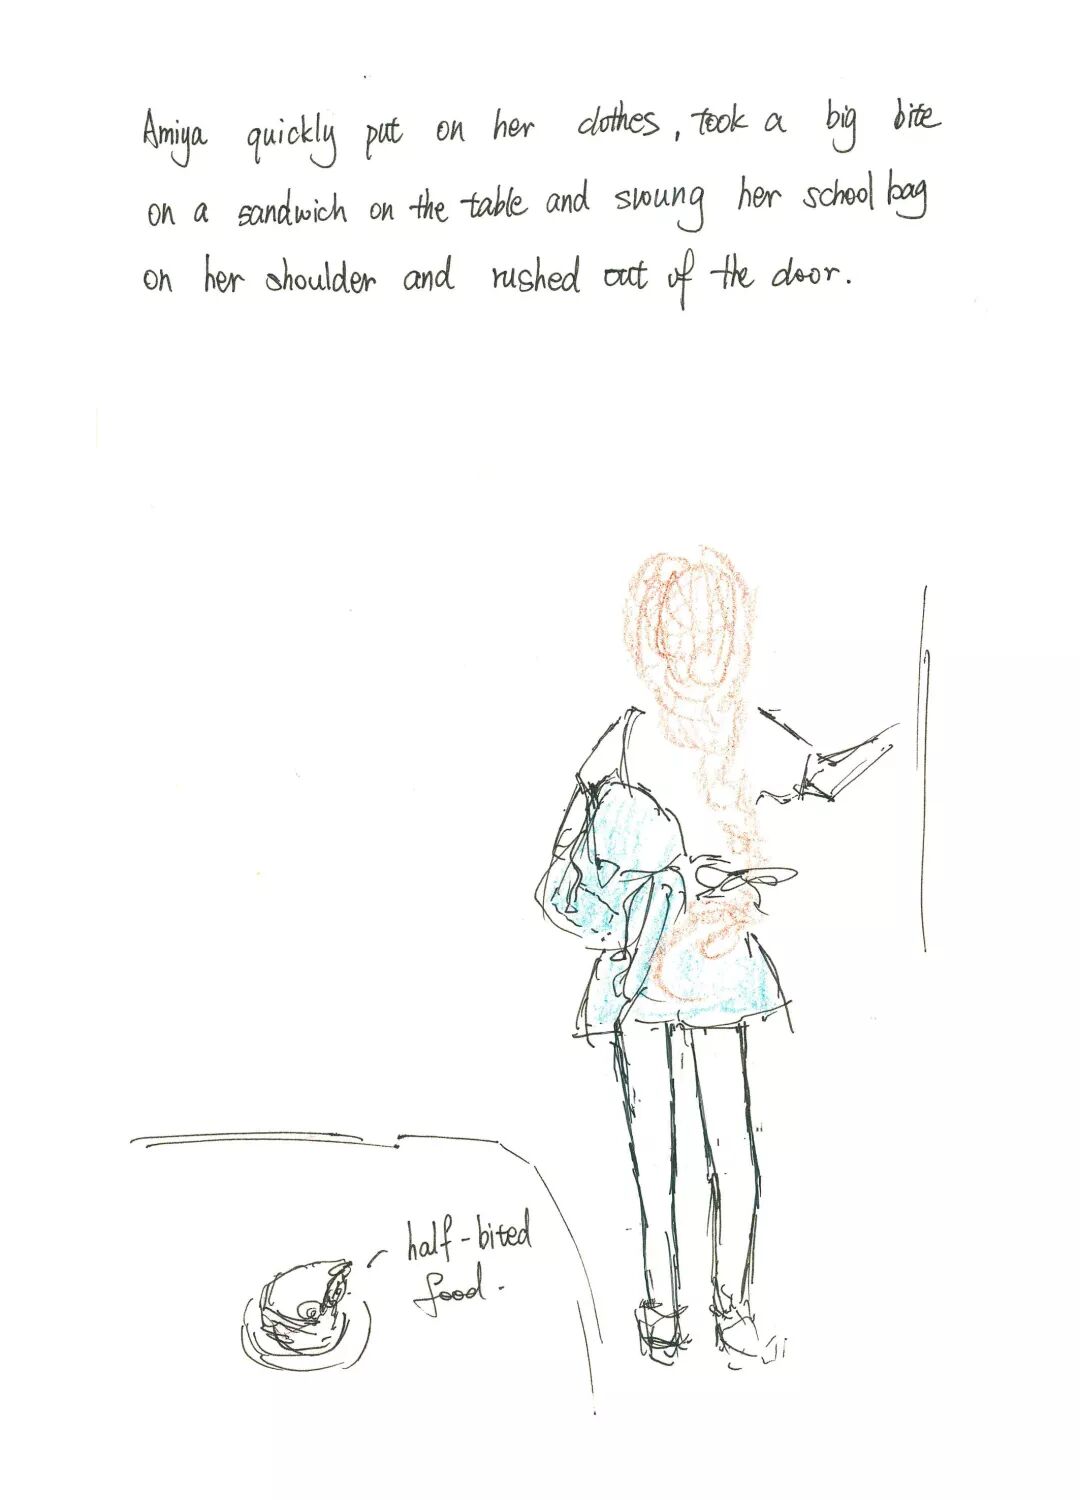 Amiya quickly put on her clothes, took a big bite
on a sandwich on the table and swung her school bag
on her shoulder and rushed out of the door.
half-bited
food.